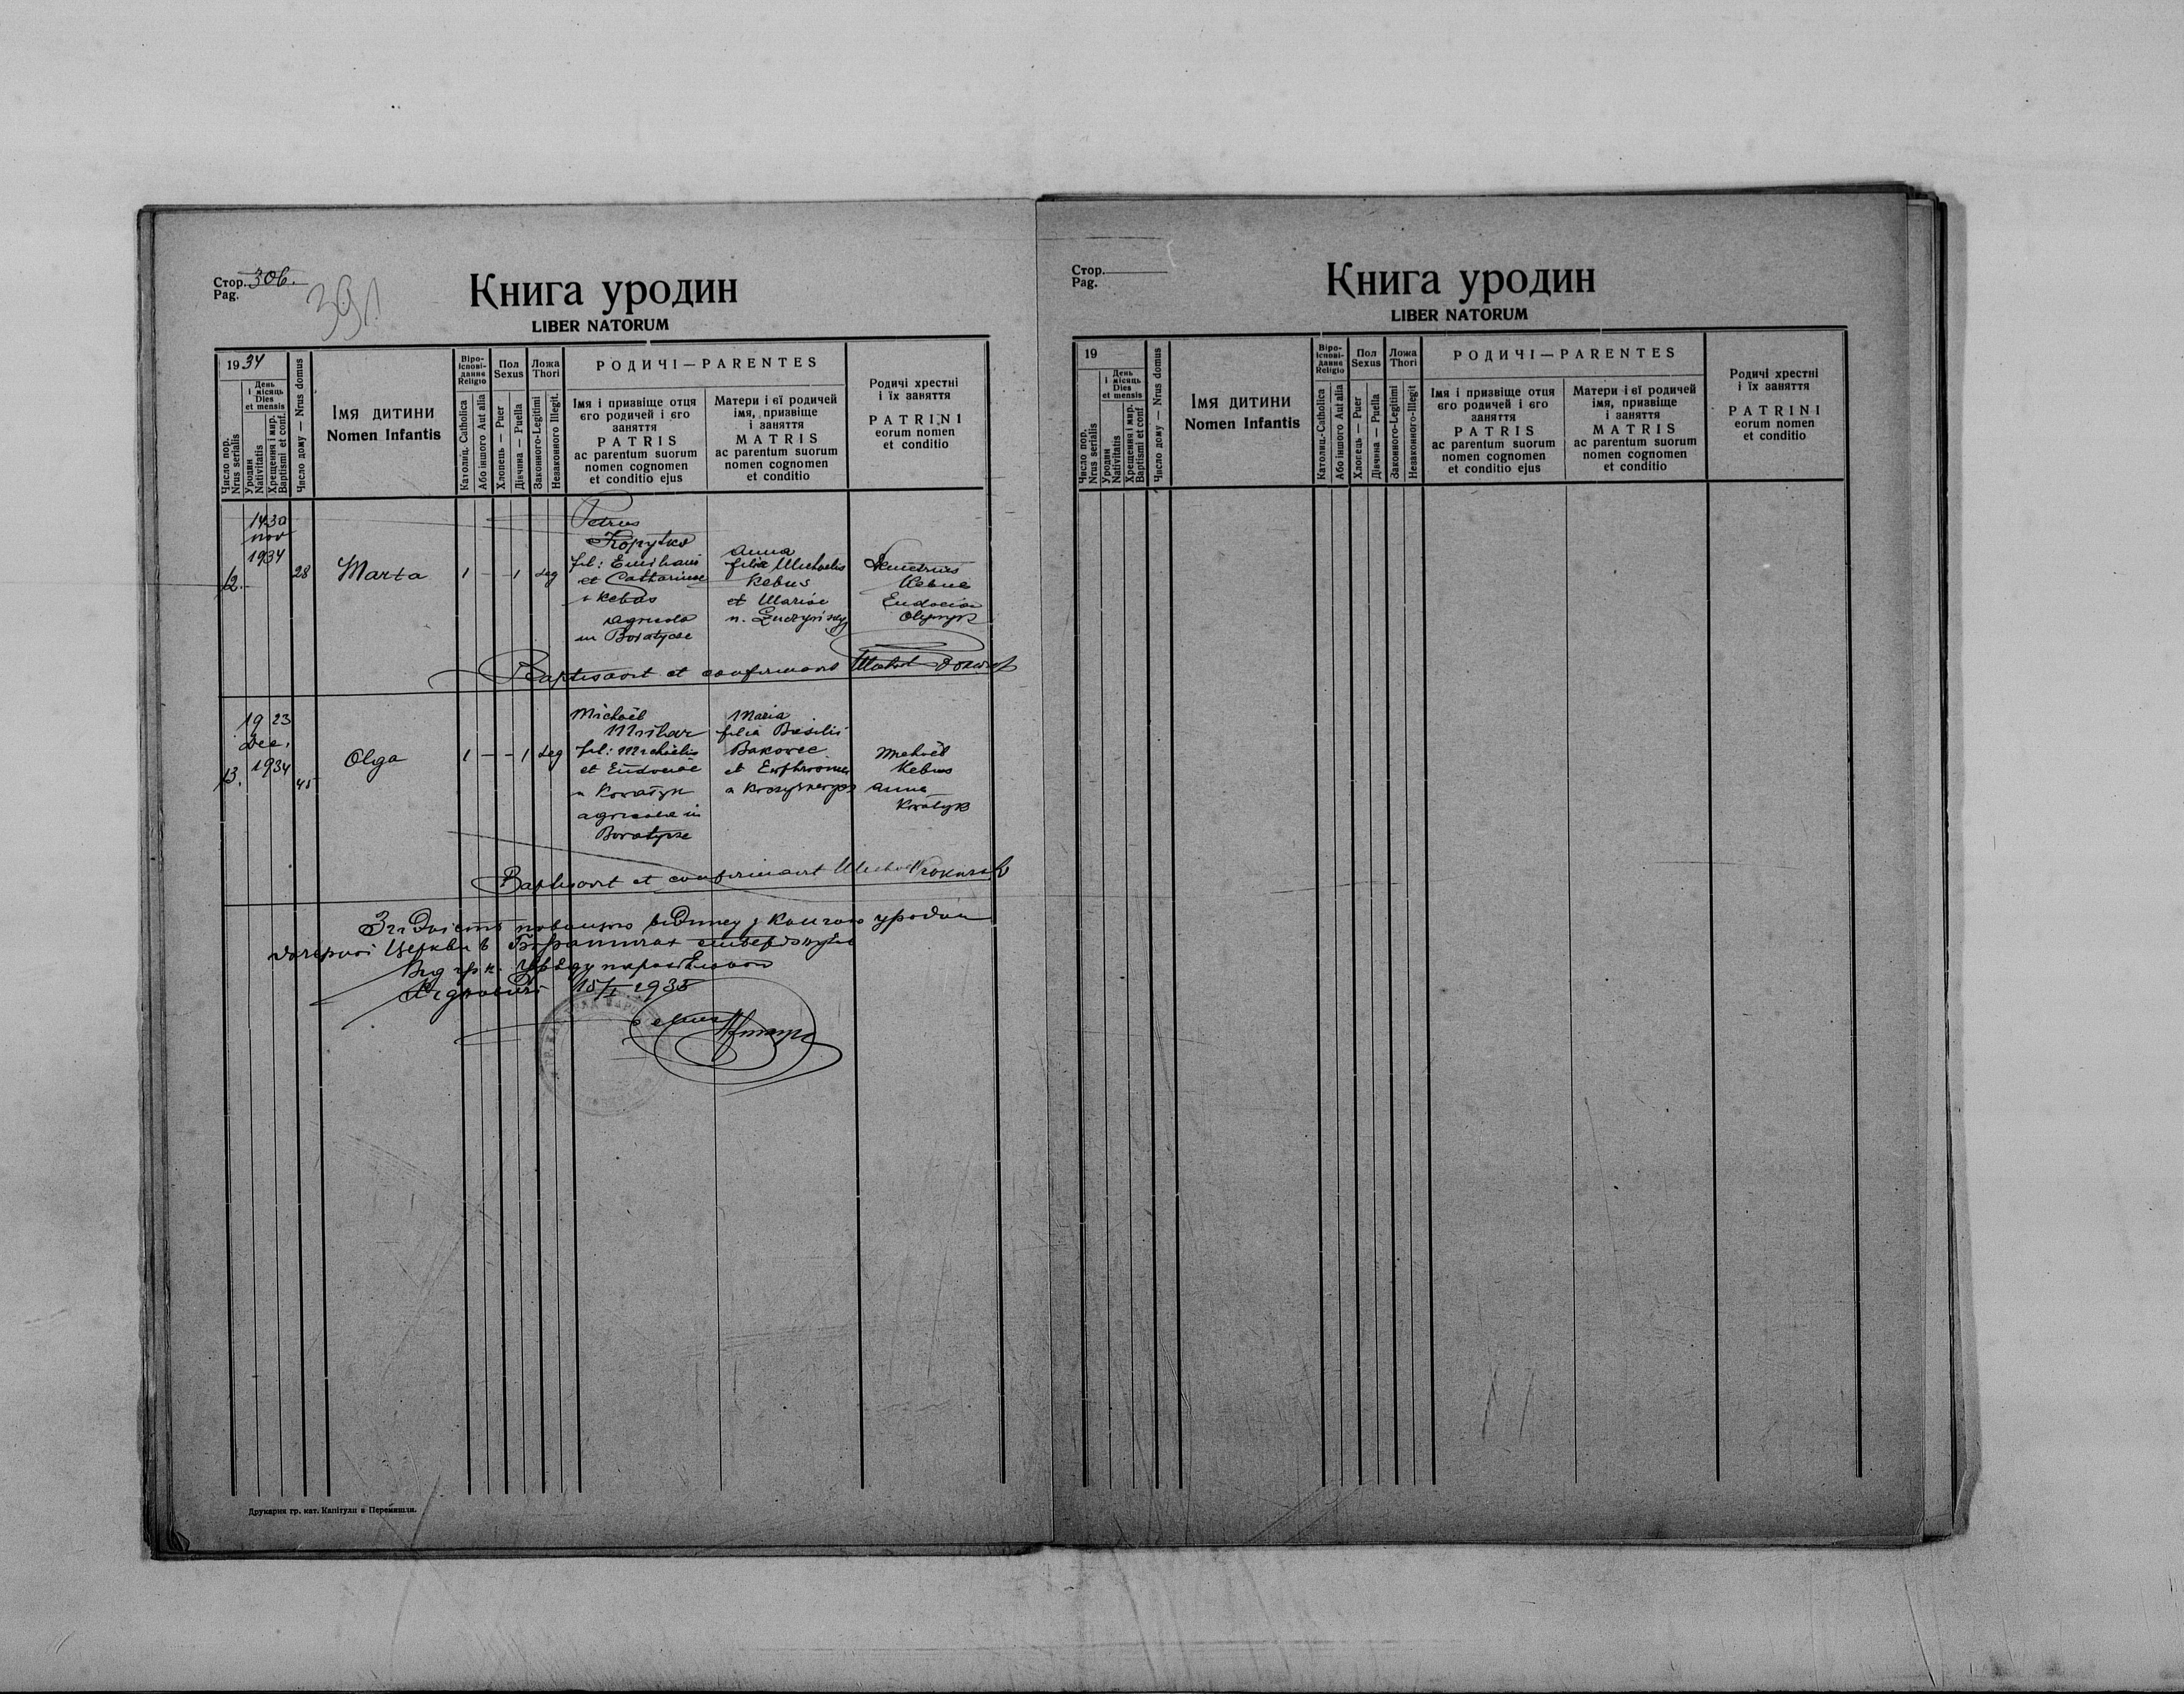 Стор. 306.
Pag.
391
Книга уродин
LIBER NATORUM
1934
Число пор.
Nrus serialis
День
і місяць
Dies
et mensis
Уродин
Nativitatis
Хрещення і мир.
Baptismi et conf.
Число дому — Nrus domus
Імя дитини
Nomen Infantis
Віро-
ісповід-
данне
Religio
Католиц. Catholica
Або іншого Aut alia
Пол
Sexus
Хлопець — Puer
Дівчина — Puella
Ложа
Thori
Законного-Legitimi
Незаконного Illegit.
РОДИЧІ — PARENTES
Імя і призвіще отця
єго родичей і єго
заняття
PATRIS
ac parentum suorum
nomen cognomen
et conditio ejus
Матери і єї родичей
імя, призвіще
і заняття
MATRIS
ac parentum suorum
nomen cognomen
et conditio
Родичі хрестні
і їх заняття
PATRINI
eorum nomen
et conditio
12.
14 30
nov
1934
28
Marta
1 – – 1 leg
Petrus
Kopytko
fil: Emiliani
et Catharinae
a Kebus
agricola
in Boratycze
Anna
filia Michaelis
Kebus
et Mariae
n.
Demetrius
Kebus
Eudocia
Baptisavit et confirmavit
13.
19 23
Dec.
1934
45
Olga
1 – – 1 leg
Michaël
fil: Michaelis
et Eudociae
a Kowalyk
agricolae in
Boratycze
Maria
filia Basilii
Bakowec
et
a
Michaël
Kebus
Anna
Baptisavit et confirmavit
книгою уродин
дочерної Церкви в
15/I 1935
Друкарня гр. кат. Капітули в Перемишли.
Стор.
Pag.
Книга уродин
LIBER NATORUM
19
Число пор.
Nrus serialis
День
і місяць
Dies
et mensis
Уродин
Nativitatis
Хрещення і мир.
Baptismi et conf.
Число дому — Nrus domus
Імя дитини
Nomen Infantis
Віро-
іспові-
данне
Religio
Католиц.-Catholica
Або іншого Aut alia
Пол
Sexus
Хлопець — Puer
Дівчина — Puella
Ложа
Thori
Законного-Legitimi
Незаконного-Illegit
РОДИЧІ — PARENTES
Імя і призвіще отця
єго родичей і єго
заняття
PATRIS
ac parentum suorum
nomen cognomen
et conditio ejus
Матери і єї родичей
імя, призвіще
і заняття
MATRIS
ac parentum suorum
nomen cognomen
et conditio
Родичі хрестні
і їх заняття
PATRINI
eorum nomen
et conditio